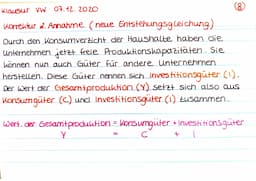 Klausur VW 07.12.2020
8
Korrektur 2. Annahme (neue Entstehungsgleichung)
Durch den Konsumverzicht der Haushalte haben die
Unternehmen jetzt freie Produktionskapazitäten. Sie
können nun auch Güter für andere Unternehmen
herstellen. Diese Güter nennen sich Investitionsgüter (I).
Der Wert der Gesamtproduktion (Y) setzt sich also aus
Konsumgüter (C) und Investitionsgüter (I) zusammen.
Wert der Gesamtproduktion = Konsumgüter + Investitionsgüter
Y = C + I